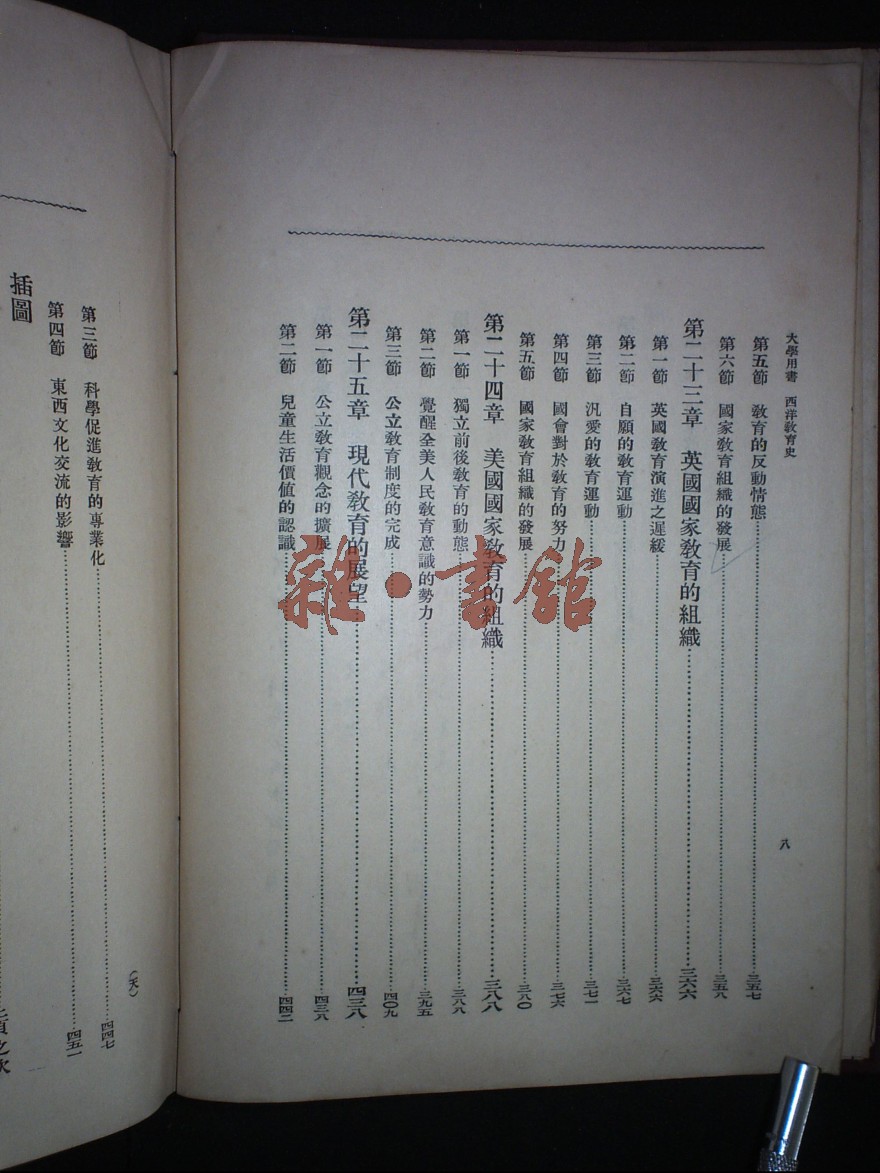 大學用書　西洋教育史
八
第五節　教育的反動情態……三五七
第六節　國家教育組織的發展……三五八
第二十三章　英國國家教育的組織……三六六
第一節　英國教育演進之遲緩……三六六
第二節　自願的教育運動……三六七
第三節　汎愛的教育運動……三七一
第四節　國會對於教育的努力……三七六
第五節　國家教育組織的發展……三八〇
第二十四章　美國國家教育的組織……三八八
第一節　獨立前後教育的動態……三八八
第二節　覺醒全美人民教育意識的勢力……三九五
第三節　公立教育制度的完成……四〇九
第二十五章　現代教育的展望……四三八
第一節　公立教育觀念的擴展……四三八
第二節　兒童生活價值的認識……四四二
雜·書館
第三節　科學促進教育的專業化……四四七
第四節　東西文化交流的影響……四五一
插圖